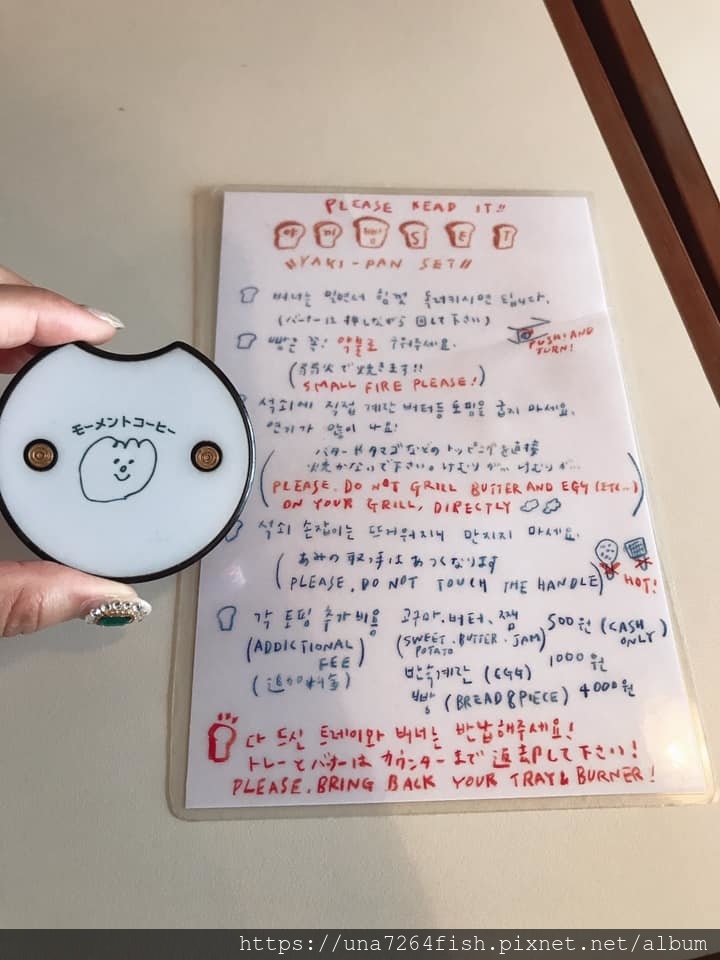 PLEASE READ IT!!
야끼빵 SET
"YAKI-PAN SET"
버너는 밀면서 힘껏 돌려키시면 됩니다.
(バーナーは押しながら回して下さい)
PUSH! AND TURN!
빵은 꼭! 약불로 구워주세요.
(弱弱火で焼きます!!
SMALL FIRE PLEASE!)
석쇠에 직접 계란 버터등 토핑을 굽지 마세요.
연기가 많이 나요!
(バターやタマゴなどのトッピングを直接
焼かないで下さい。けむりが… けむりが…
PLEASE. DO NOT GRILL BUTTER AND EGG (ETC..)
ON YOUR GRILL, DIRECTLY)
석쇠 손잡이는 뜨거워지니 만지지 마세요.
(あみの取っ手はあつくなります
PLEASE. DO NOT TOUCH THE HANDLE)
HOT!
각 토핑 추가비용
(ADDICTIONAL FEE)
(追加料金)
고구마.버터.잼 500원 (CASH ONLY)
(SWEET POTATO.BUTTER.JAM)
반숙계란 (EGG) 1000원
빵 (BREAD 8 PIECE) 4000원
다 드신 트레이와 버너는 반납해주세요!
トレーとバナーはカウンターまで返却して下さい!
PLEASE. BRING BACK YOUR TRAY & BURNER!
モーメントコーヒー
https://una7264fish.pixnet.net/album